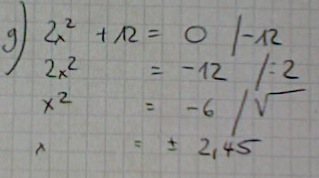 g) 2x² + 12 = 0 /-12
2x² = -12 /:2
x² = -6 /√
x = ± 2,45